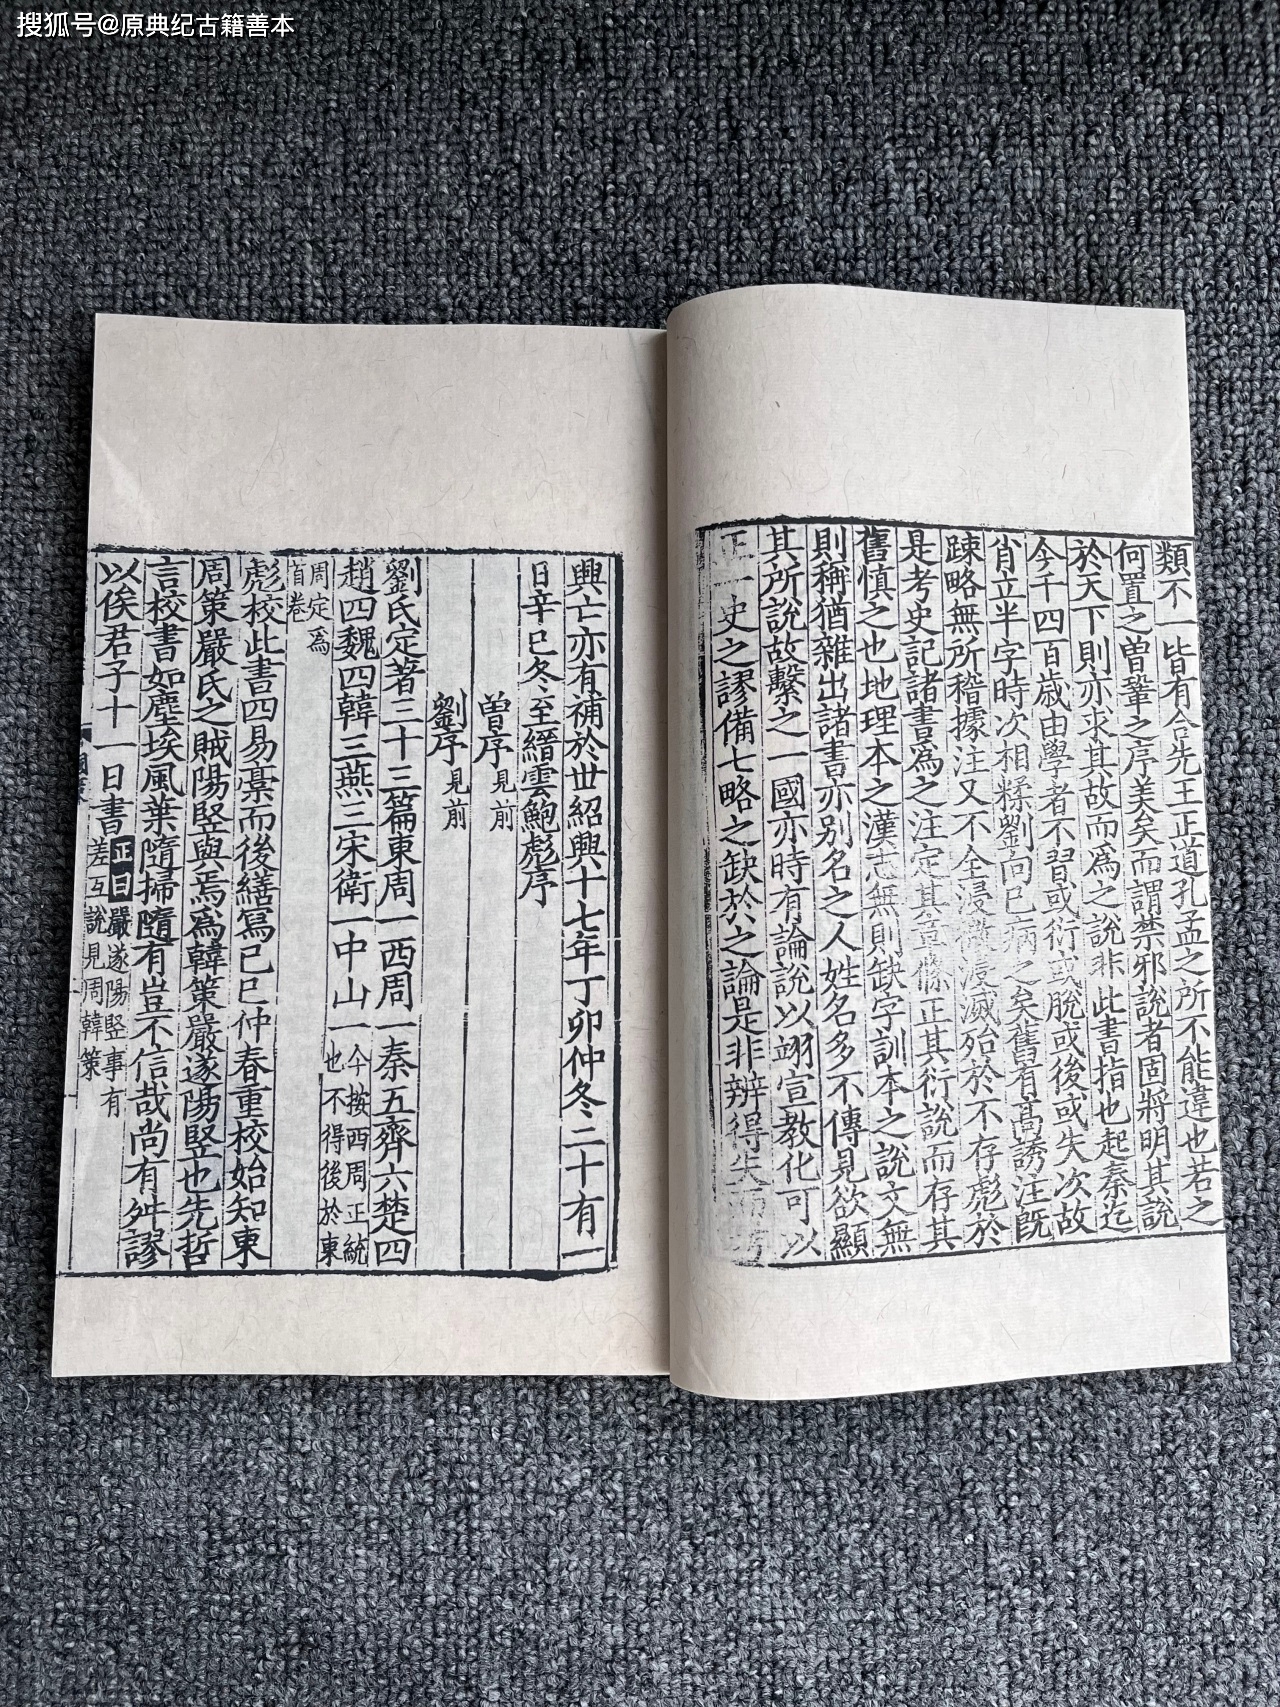 搜狐号@原典纪古籍善本
類不一皆有合先王正道孔孟之所不能違也若之
何置之曽鞏之序美矣而謂禁邪說者固將明其說
於天下則亦求其故而爲之說非此書指也起秦迄
今千四百歳由學者不習或衍或脫或後或失次故
肖立半字時次相糅劉向已病之矣舊有高誘注既
踈略無所稽據注又不全浸微浸滅殆於不存彪於
是考史記諸書爲之注定其章條正其衍說而存其
舊慎之也地理本之漢志無則缺字訓本之說文無
則稱猶雜出諸書亦别名之人姓名多不傳見欲顯
其所說故繫之一國亦時有論說以翊宣教化可以
正一史之謬備七略之缺於之論是非辨得失而考
興亡亦有補於丗紹興十七年丁卯仲冬二十有一
日辛巳冬至縉雲鮑彪序
曽序見前
劉序見前
劉氏定著三十三篇東周一西周一秦五齊六楚四
趙四魏四韓三燕三宋衛一中山一今按西周正統
也不得後於東
周定爲
首卷
彪校此書四易藁而後繕寫已巳仲春重校始知東
周策嚴氏之賊陽竪與焉爲韓策嚴遂陽竪也先哲
言校書如塵埃風葉隨掃隨有豈不信哉尚有舛謬
以俟君子十一日書正曰嚴遂陽竪事有
差互說見周韓策